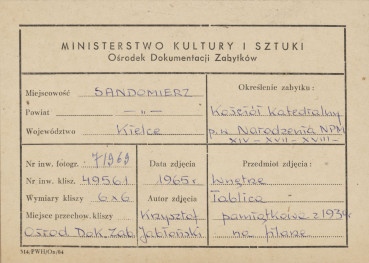 MINISTERSTWO KULTURY I SZTUKI
Ośrodek Dokumentacji Zabytków
Miejscowość SANDOMIERZ
Powiat — „ —
Województwo Kielce
Określenie zabytku:
Kościół Katedralny
p.w. Narodzenia NPM
XIV - XVII - XVIII
Nr inw. fotogr. 71969
Nr inw. klisz. 49561
Wymiary kliszy 6x6
Miejsce przechow. kliszy
Ośrod. Dok. Zab.
Data zdjęcia
1965 r.
Autor zdjęcia
Krzysztof
Jabłoński
Przedmiot zdjęcia:
Wnętrze
Tablica
pamiątkowa z 1934r
na filarze